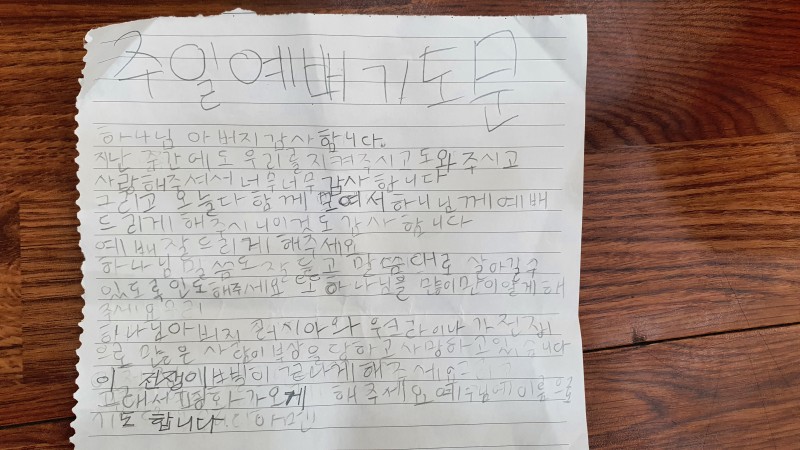 주일예배기도문
하나님 아버지 감사합니다.
지난 주간에도 우리를 지켜주시고 도와 주시고
사랑해주셔서 너무너무 감사합니다
그리고 오늘다 함께 모여서 하나님께 예배
드리게 해주시니이것도 감사합니다
예배잘드리게 해주세요
하나님말씀도잘듣고 말씀대로 살아갈수
있도록인도해주세요 또 하나님을 많이많이알게해
주세요
하나님아버지 러시아와 우크라이나가전쟁
으로 많은 사람이부상을당하고사망하고있습니다
이 전쟁이 끝나게해주세요
그래서평화가오게 해주세요예수님에이름으로
기도 합니다 아멘